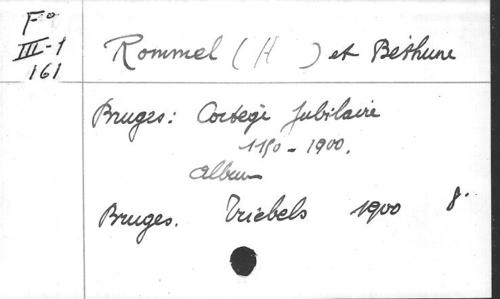 F°
III-1
161
Rommel (H ) et Béthune
Bruges: Cortège Jubilaire
1150-1900.
Album
Bruges. Uriebels 1900 8°